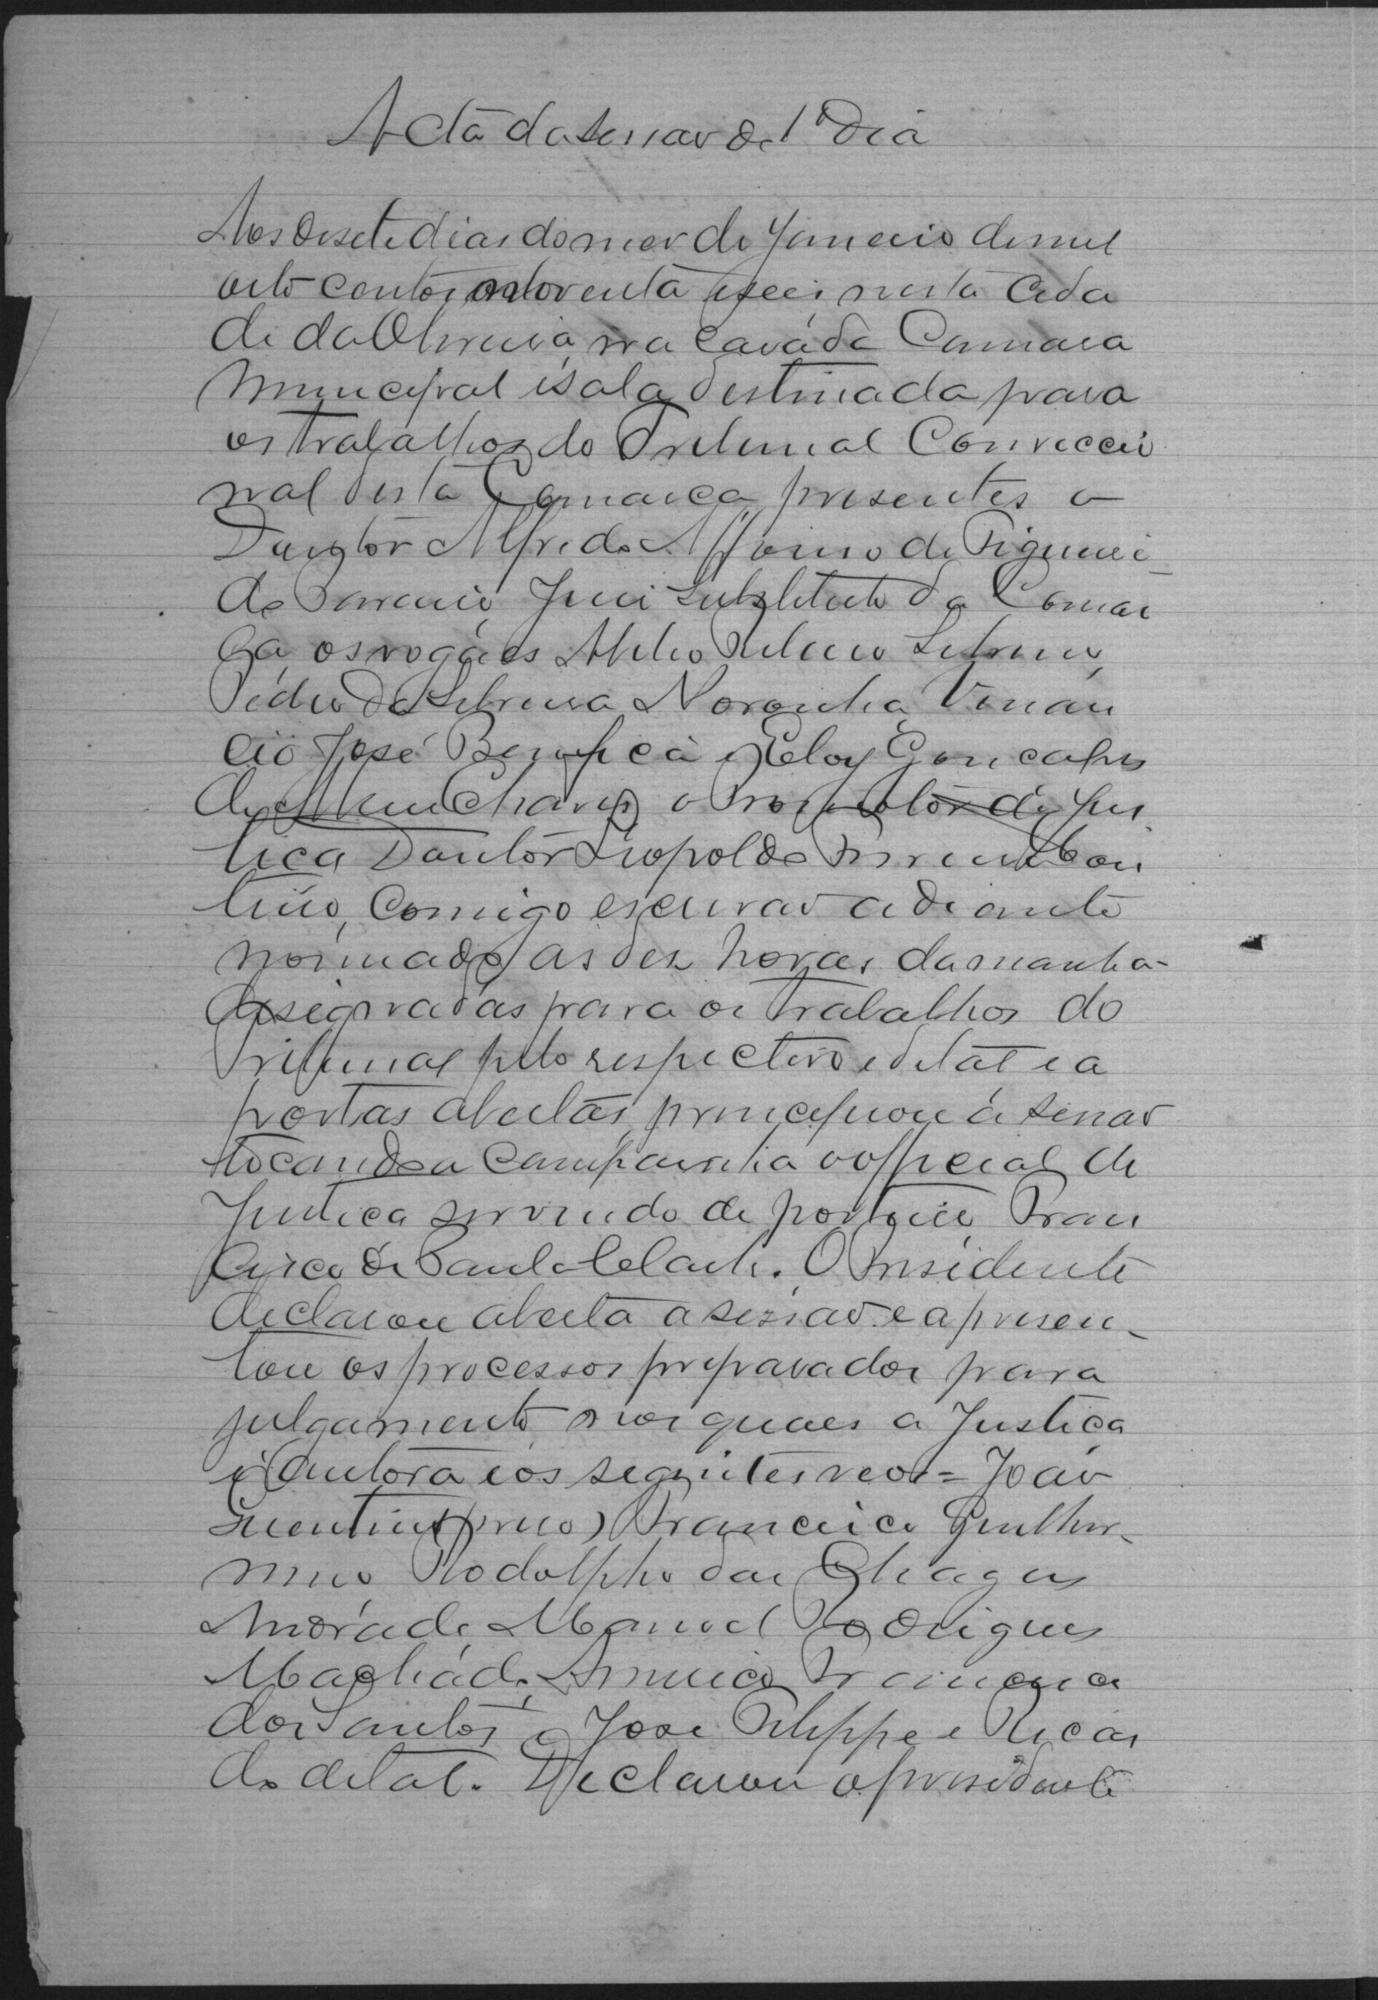 Acta da sessao do 1º Dia
Aos desete dias do mes de Janeiro de mil
oito centos e noventa e seis nesta Cida
de da Oliveira, na Casa da Camara
Municipal e sala destinada para
os trabalhos do Tribunal Correccio
nal desta Comarca, presentes o
Doutor Alfredo Affonso de Figueirê
do Juiz Substituto da Comar
ca, os vogáes Ribeiro
Pedro da Silveira Noronha, Venan
cio José Bemfica e Eloy Goncalves
de Chaves, o Promotor de Jus
tica Doutor Leopoldo Ferreira Mon
teiro, Comigo escrivao adiante
nomiado, as dez horas da manha
desegnadas para os trabalhos do
Tribunal pelo respectivo edital e a
portas abertas, principiou á sessao
tocando a campainha o official de
Justica servindo de porteiro, Fran
cisco de Paula. O Presidente
declarou aberta a sessao e apresen-
tou os processos preparados para
julgamento nos quaes a Justiça
é Autora e os seguintes reos = Joao
(preso) Francisco Guilher-
mino Rodolpho das Chagas
Andrade Manoel Rodrigues
Machádo, Americo Francisco
dos Santos e Jose Felippe e Ricar
do de tal. Declarou o presidente